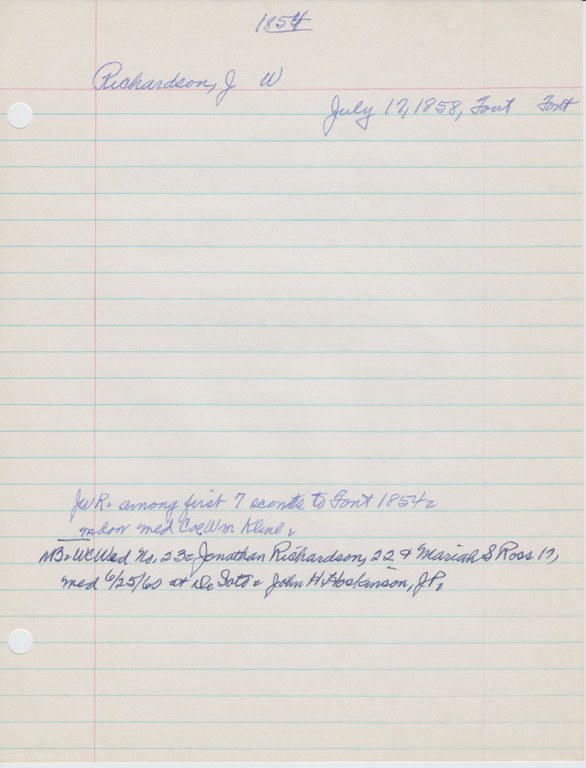 1854
Richardson, J W
July 17, 1858, Font Font
JWR. among first 7 scouts to Font 1854
med Wm Kline
NB. WC Wed No. 23 = Jonathan Richardson, 22 & Mariah S Ross 17,
med 6/25/60 at De Soto = John H. Hoskinson, J.P.